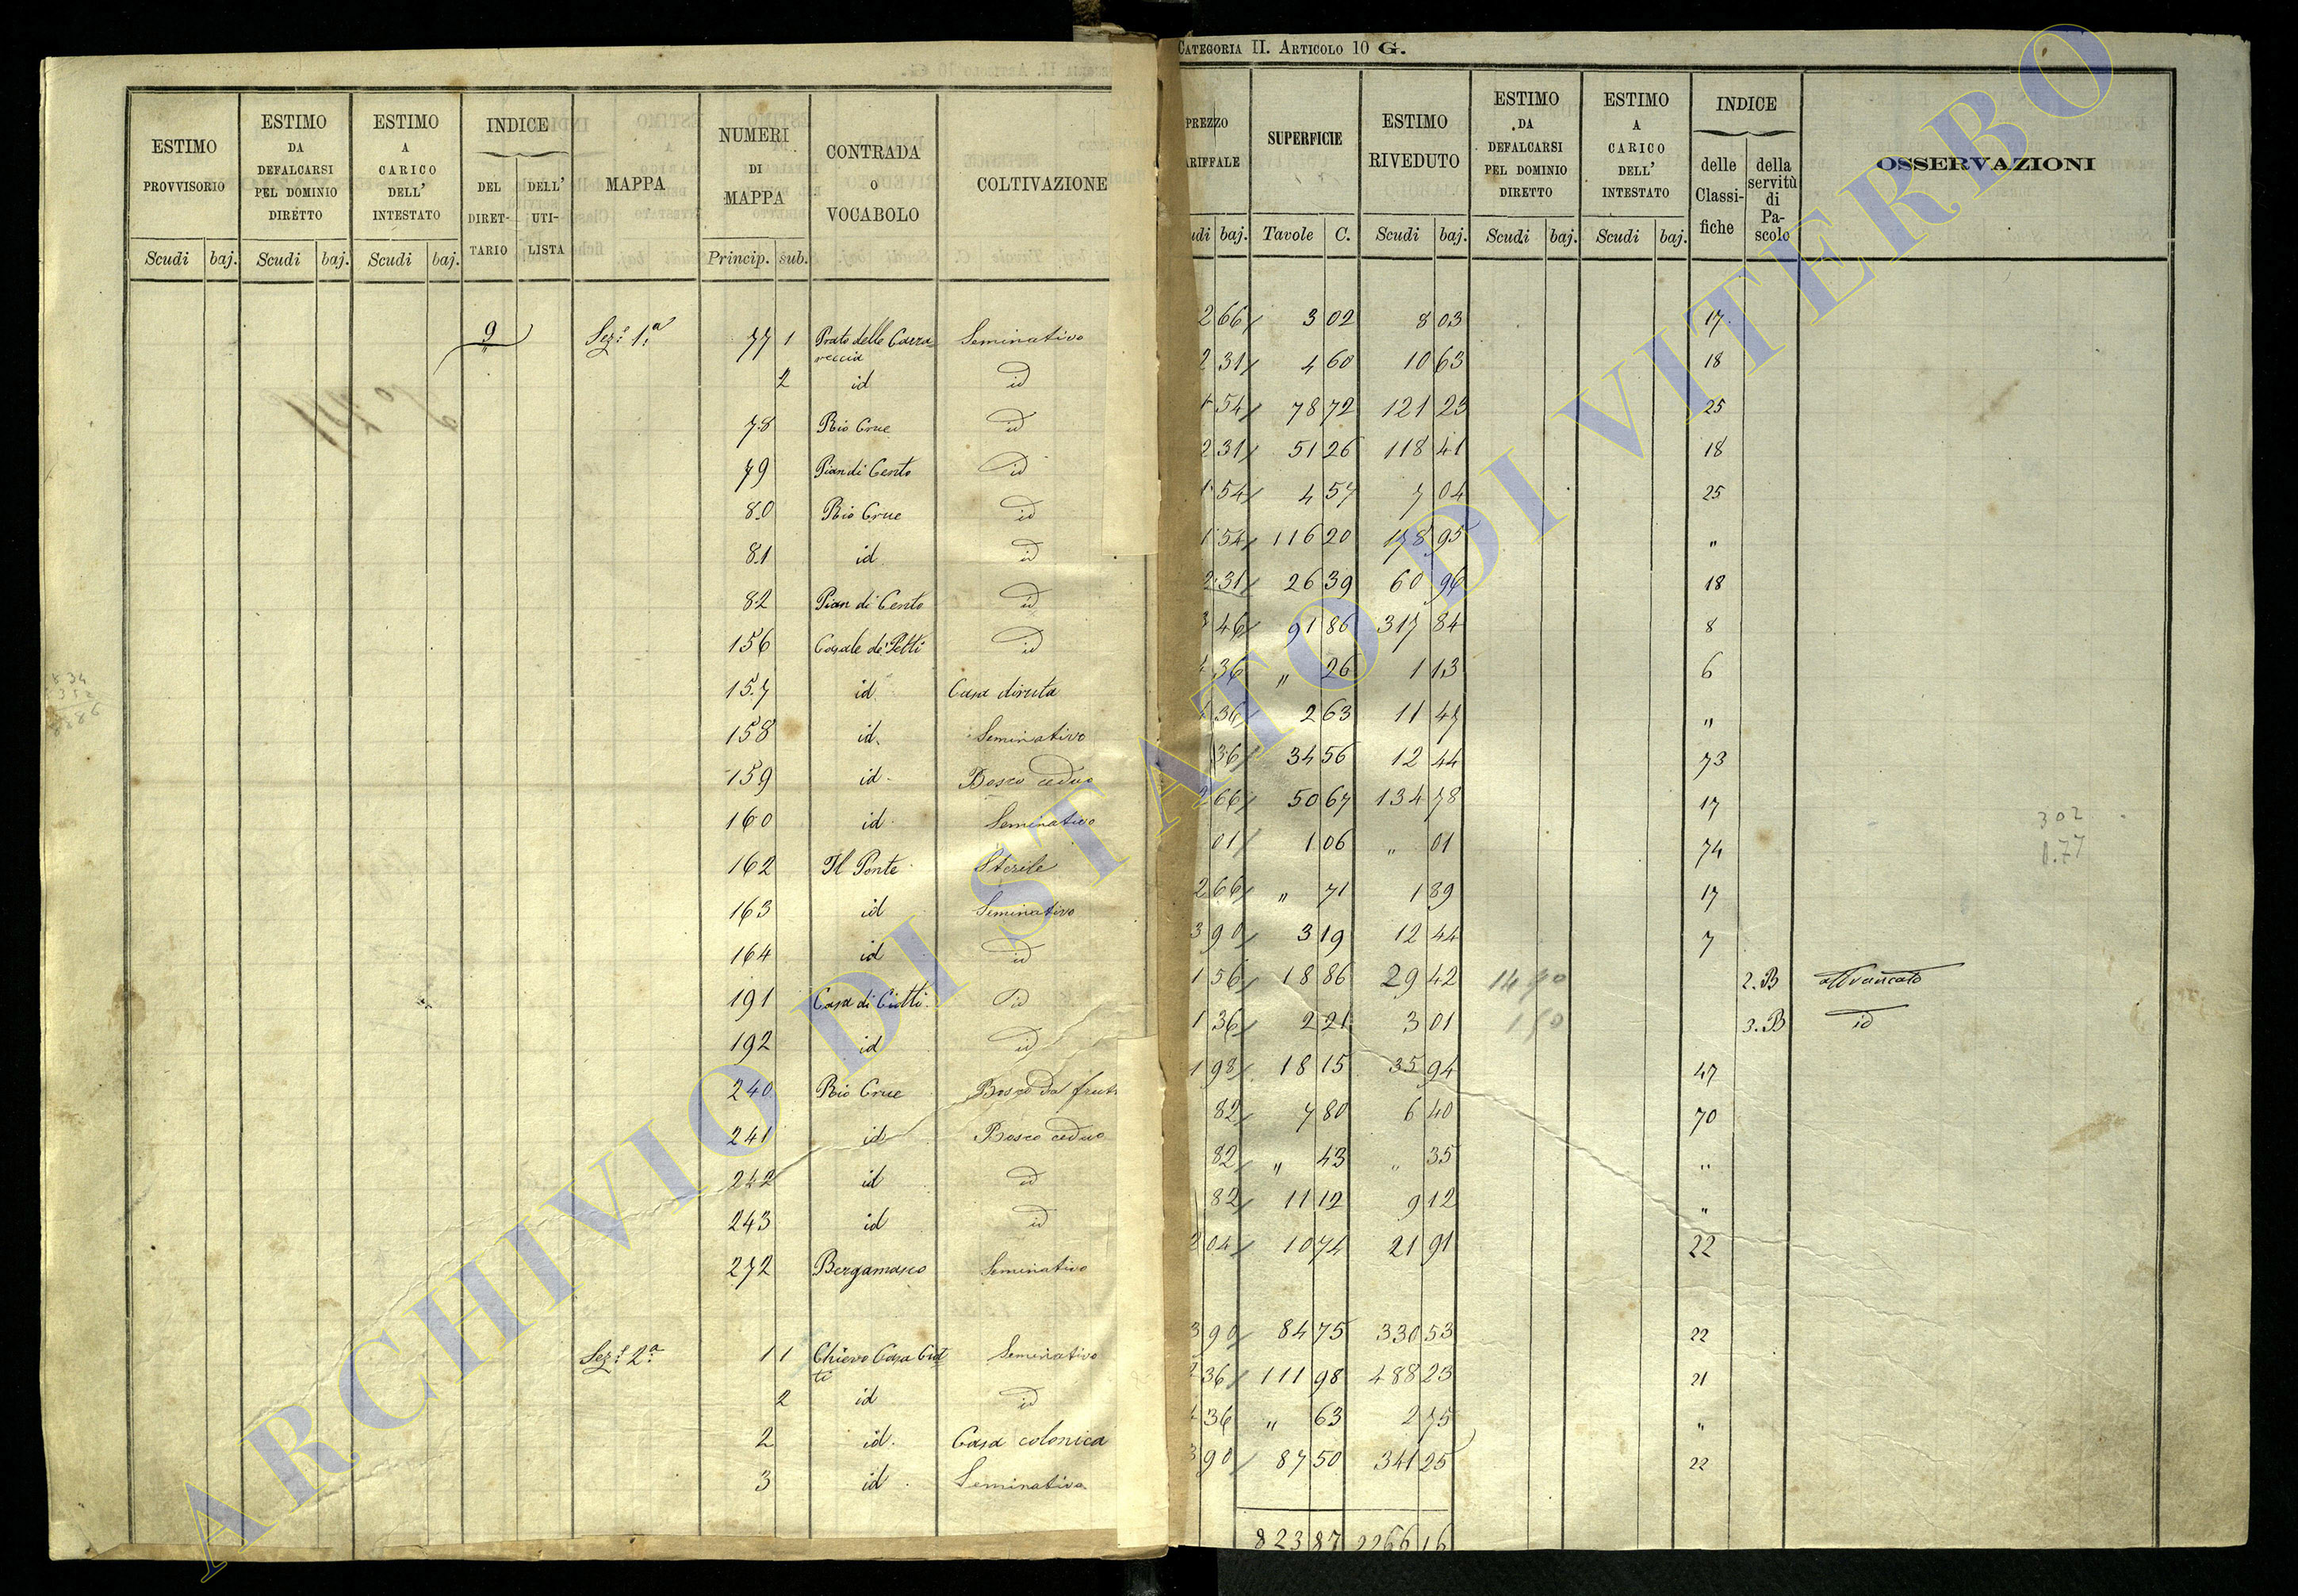 CATEGORIA II. ARTICOLO 10 G.
ESTIMO PROVVISORIO
ESTIMO DA DEFALCARSI PEL DOMINIO DIRETTO
ESTIMO A CARICO DELL' INTESTATO
INDICE
DEL DIRETTARIO
DELL' UTILISTA
MAPPA
NUMERI DI MAPPA
CONTRADA O VOCABOLO
COLTIVAZIONE
Scudi baj. Scudi baj. Scudi baj. Princip. sub.
9 Sez.e 1.a 77 1 Prato delle Carra
reccia Seminativo
2 id id
78 Rio Grue id
79 Pian di Cento id
80 Rio Grue id
81 id id
82 Pian di Cento id
156 Casale de' Petti id
157 id Casa diruta
158 id Seminativo
159 id Bosco ceduo
160 id Seminativo
162 Il Ponte Sterile
163 id Seminativo
164 id id
191 Casa di Ciotti id
192 id id
240 Rio Grue Bosco da frutt
241 id Bosco ceduo
242 id id
243 id id
272 Bergamasco Seminativo
Sez.e 2.a 1 1 Casa Ciot
ti Seminativo
2 id id
2 id Casa colonica
3 id Seminativo
PREZZO
ARIFFALE
SUPERFICIE
ESTIMO RIVEDUTO
ESTIMO DA DEFALCARSI PEL DOMINIO DIRETTO
ESTIMO A CARICO DELL' INTESTATO
INDICE
delle Classifiche
della servitù di Pascolo
OSSERVAZIONI
udi baj. Tavole C. Scudi baj. Scudi baj. Scudi baj.
2 66 3 02 8 03 17
2 31 4 60 10 63 18
1 54 78 72 121 23 25
2 31 51 26 118 41 18
1 54 4 57 7 04 25
1 54 116 20 178 95 "
2 31 26 39 60 96 18
3 46 91 86 317 84 8
4 36 " 26 1 13 6
4 36 2 63 11 47 "
36 34 56 12 44 73
2 66 50 67 134 78 17
01 1 06 " 01 74
2 66 " 71 1 89 17
3 90 3 19 12 44 7
1 56 18 86 29 42 2.B affrancato
1 36 2 21 3 01 3.B id
1 98 18 15 35 94 47
82 7 80 6 40 70
82 " 43 " 35 "
82 11 12 9 12 "
2 04 10 74 21 91 22
3 90 84 75 330 53 22
4 36 111 98 488 23 21
4 36 " 63 2 75 "
3 90 87 50 341 25 22
823 87 2266 16
302
0.77
ARCHIVIO DI STATO DI VITERBO